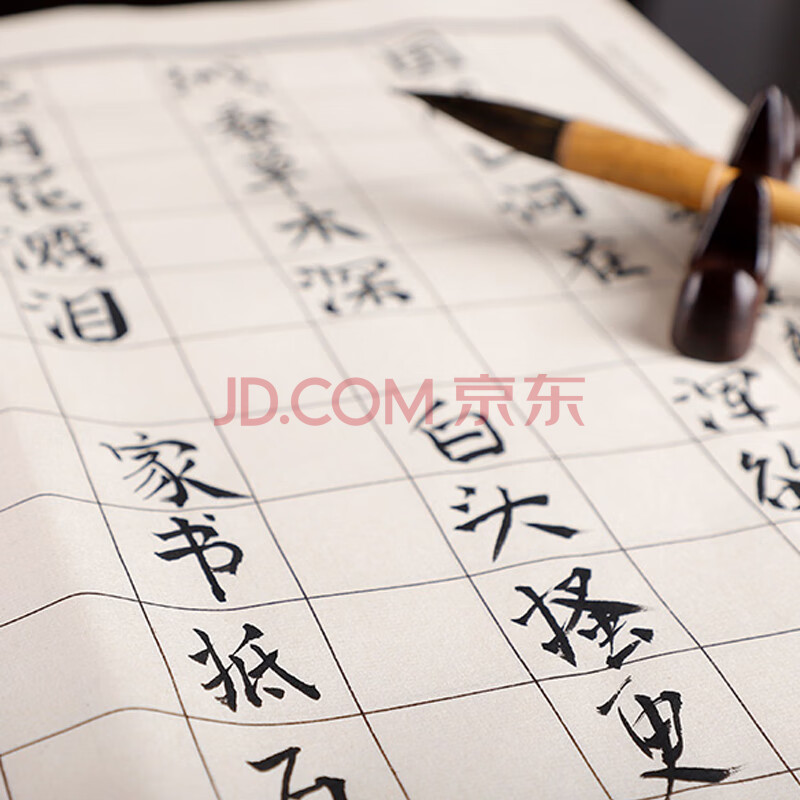 国山河在
城春草木深
时花溅泪
浑欲
白头搔更
家书抵
JD.COM 京东